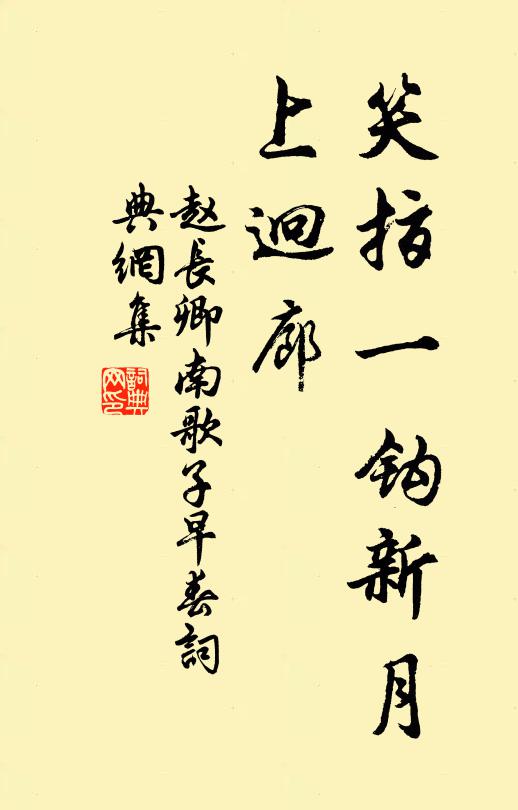 笑指一钩新月
上迴廊
赵長卿南歌子早春詞
典網集
詞典網印